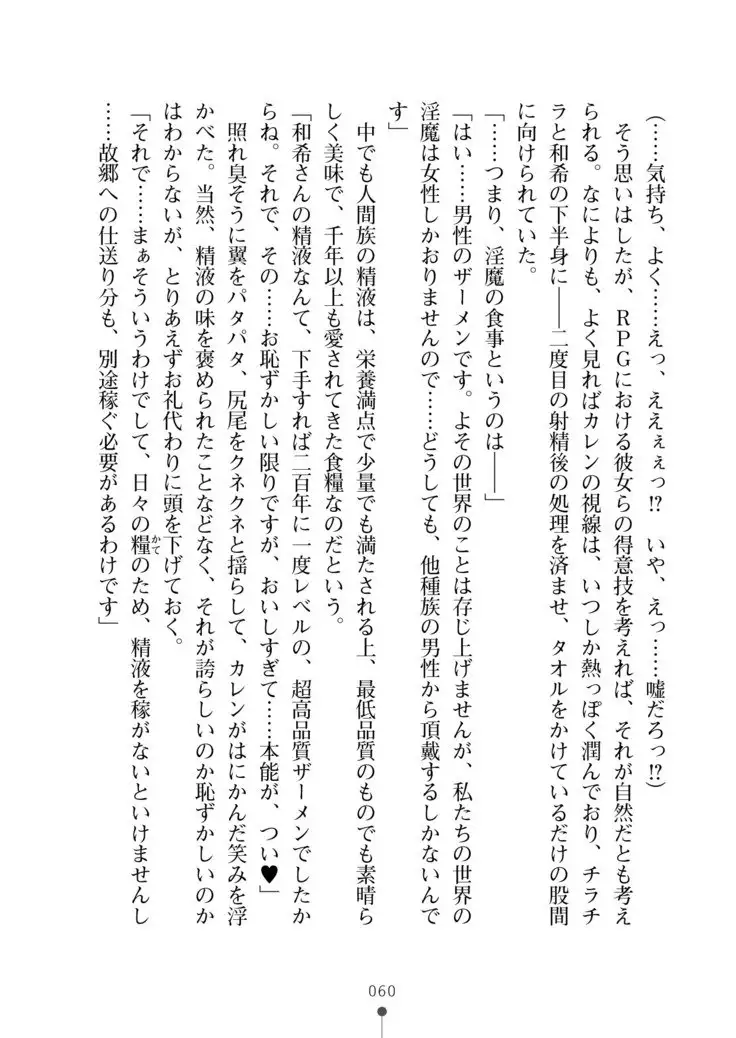 （……気持ち、よく……えっ、ええぇぇっ!?　いや、えっ……嘘だろっ!?）
　そう思いはしたが、ＲＰＧにおける彼女らの得意技を考えれば、それが自然だとも考え
られる。なによりも、よく見ればカレンの視線は、いつしか熱っぽく潤んでおり、チラチ
ラと和希の下半身に――二度目の射精後の処理を済ませ、タオルをかけているだけの股間
に向けられていた。
「……つまり、淫魔の食事というのは――」
「はい……男性のザーメンです。よその世界のことは存じ上げませんが、私たちの世界の
淫魔は女性しかおりませんので……どうしても、他種族の男性から頂戴するしかないんで
す」
　中でも人間族の精液は、栄養満点で少量でも満たされる上、最低品質のものでも素晴ら
しく美味で、千年以上も愛されてきた食糧なのだという。
「和希さんの精液なんて、下手すれば二百年に一度レベルの、超高品質ザーメンでしたか
らね。それで、その……お恥ずかしい限りですが、おいしすぎて……本能が、つい♥」
　照れ臭そうに翼をパタパタ、尻尾をクネクネと揺らして、カレンがはにかんだ笑みを浮
かべた。当然、精液の味を褒められたことなどなく、それが誇らしいのか恥ずかしいのか
はわからないが、とりあえずお礼代わりに頭を下げておく。
「それで……まぁそういうわけでして、日々の糧かてのため、精液を稼がないといけませんし
……故郷への仕送り分も、別途稼ぐ必要があるわけです」
060